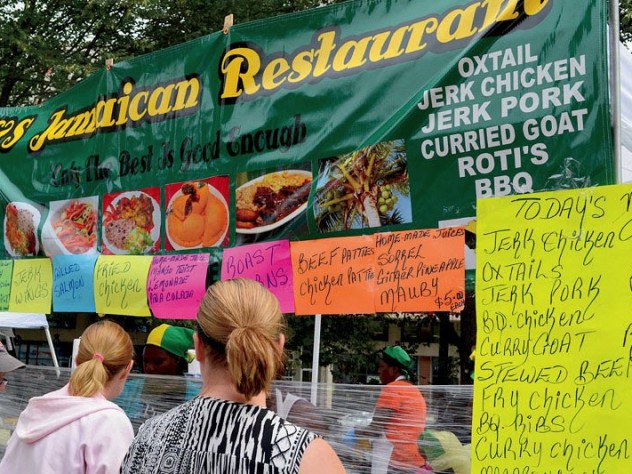 s Jamaican Restaurant
Only The Best Is Good Enough
OXTAIL
JERK CHICKEN
JERK PORK
CURRIED GOAT
ROTI'S
BBQ
JERK
WINGS
SALMON
FRIED
chicken
HOME-MADE JUICES
LEMONADE
PINA COLADA
ROAST
BEEF PATTIES
chicken PATTIE
HOME-MADE JUICES
SORREL
GINGER PINEAPPLE
MAUBY
$5.00
EACH
TODAY'S
JERK chicken
OXTAILS
JERK PORK
BQ. chicken
CURRY GOAT
STEWED BEEF
FRY chicken
BQ. RIBS
CURRY chicken